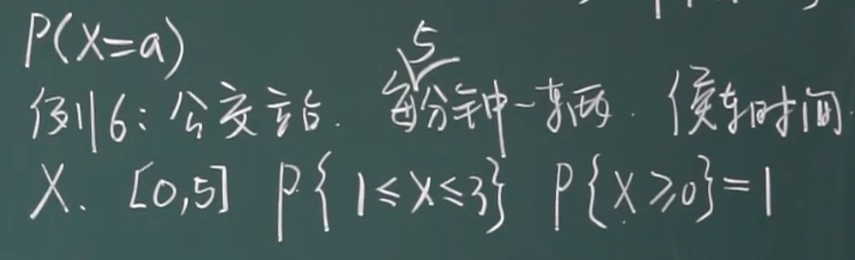 P(X=a)
例6：公交站. 每5分钟一车辆. 候车时间
X. [0,5] P{1≤X≤3} P{X≥0}=1